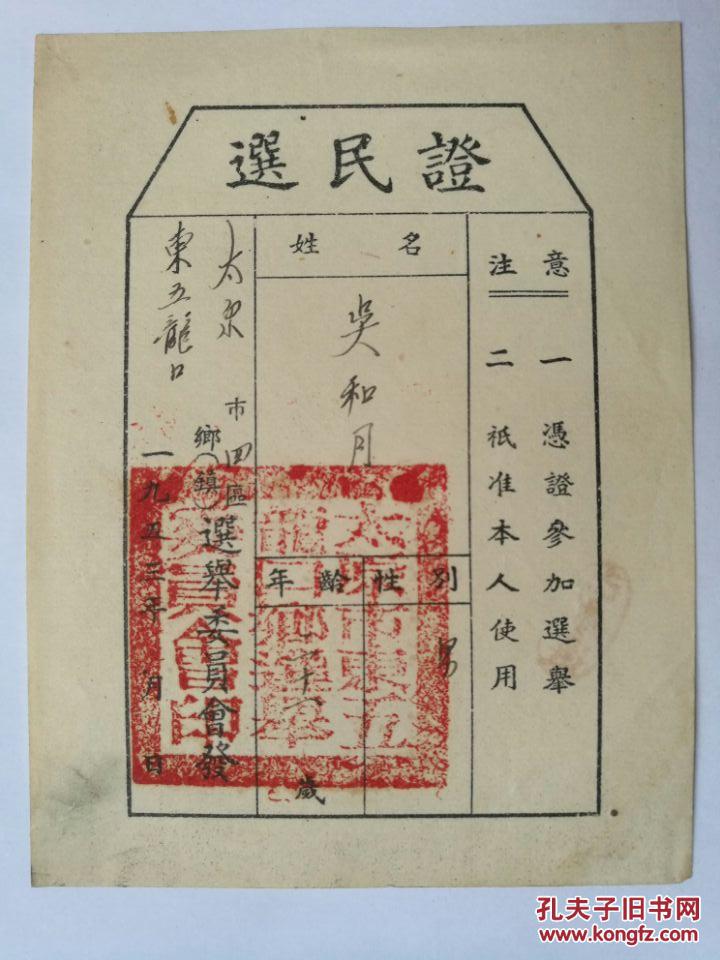 選民證
注意
一 憑證參加選舉
二 祇准本人使用
姓名
吳和月
性別
男
年齡
歲
太泉市四區
東五龍口鄉（鎮）選舉委員會發
一九五三年 月 日
孔夫子旧书网
www.kongfz.com